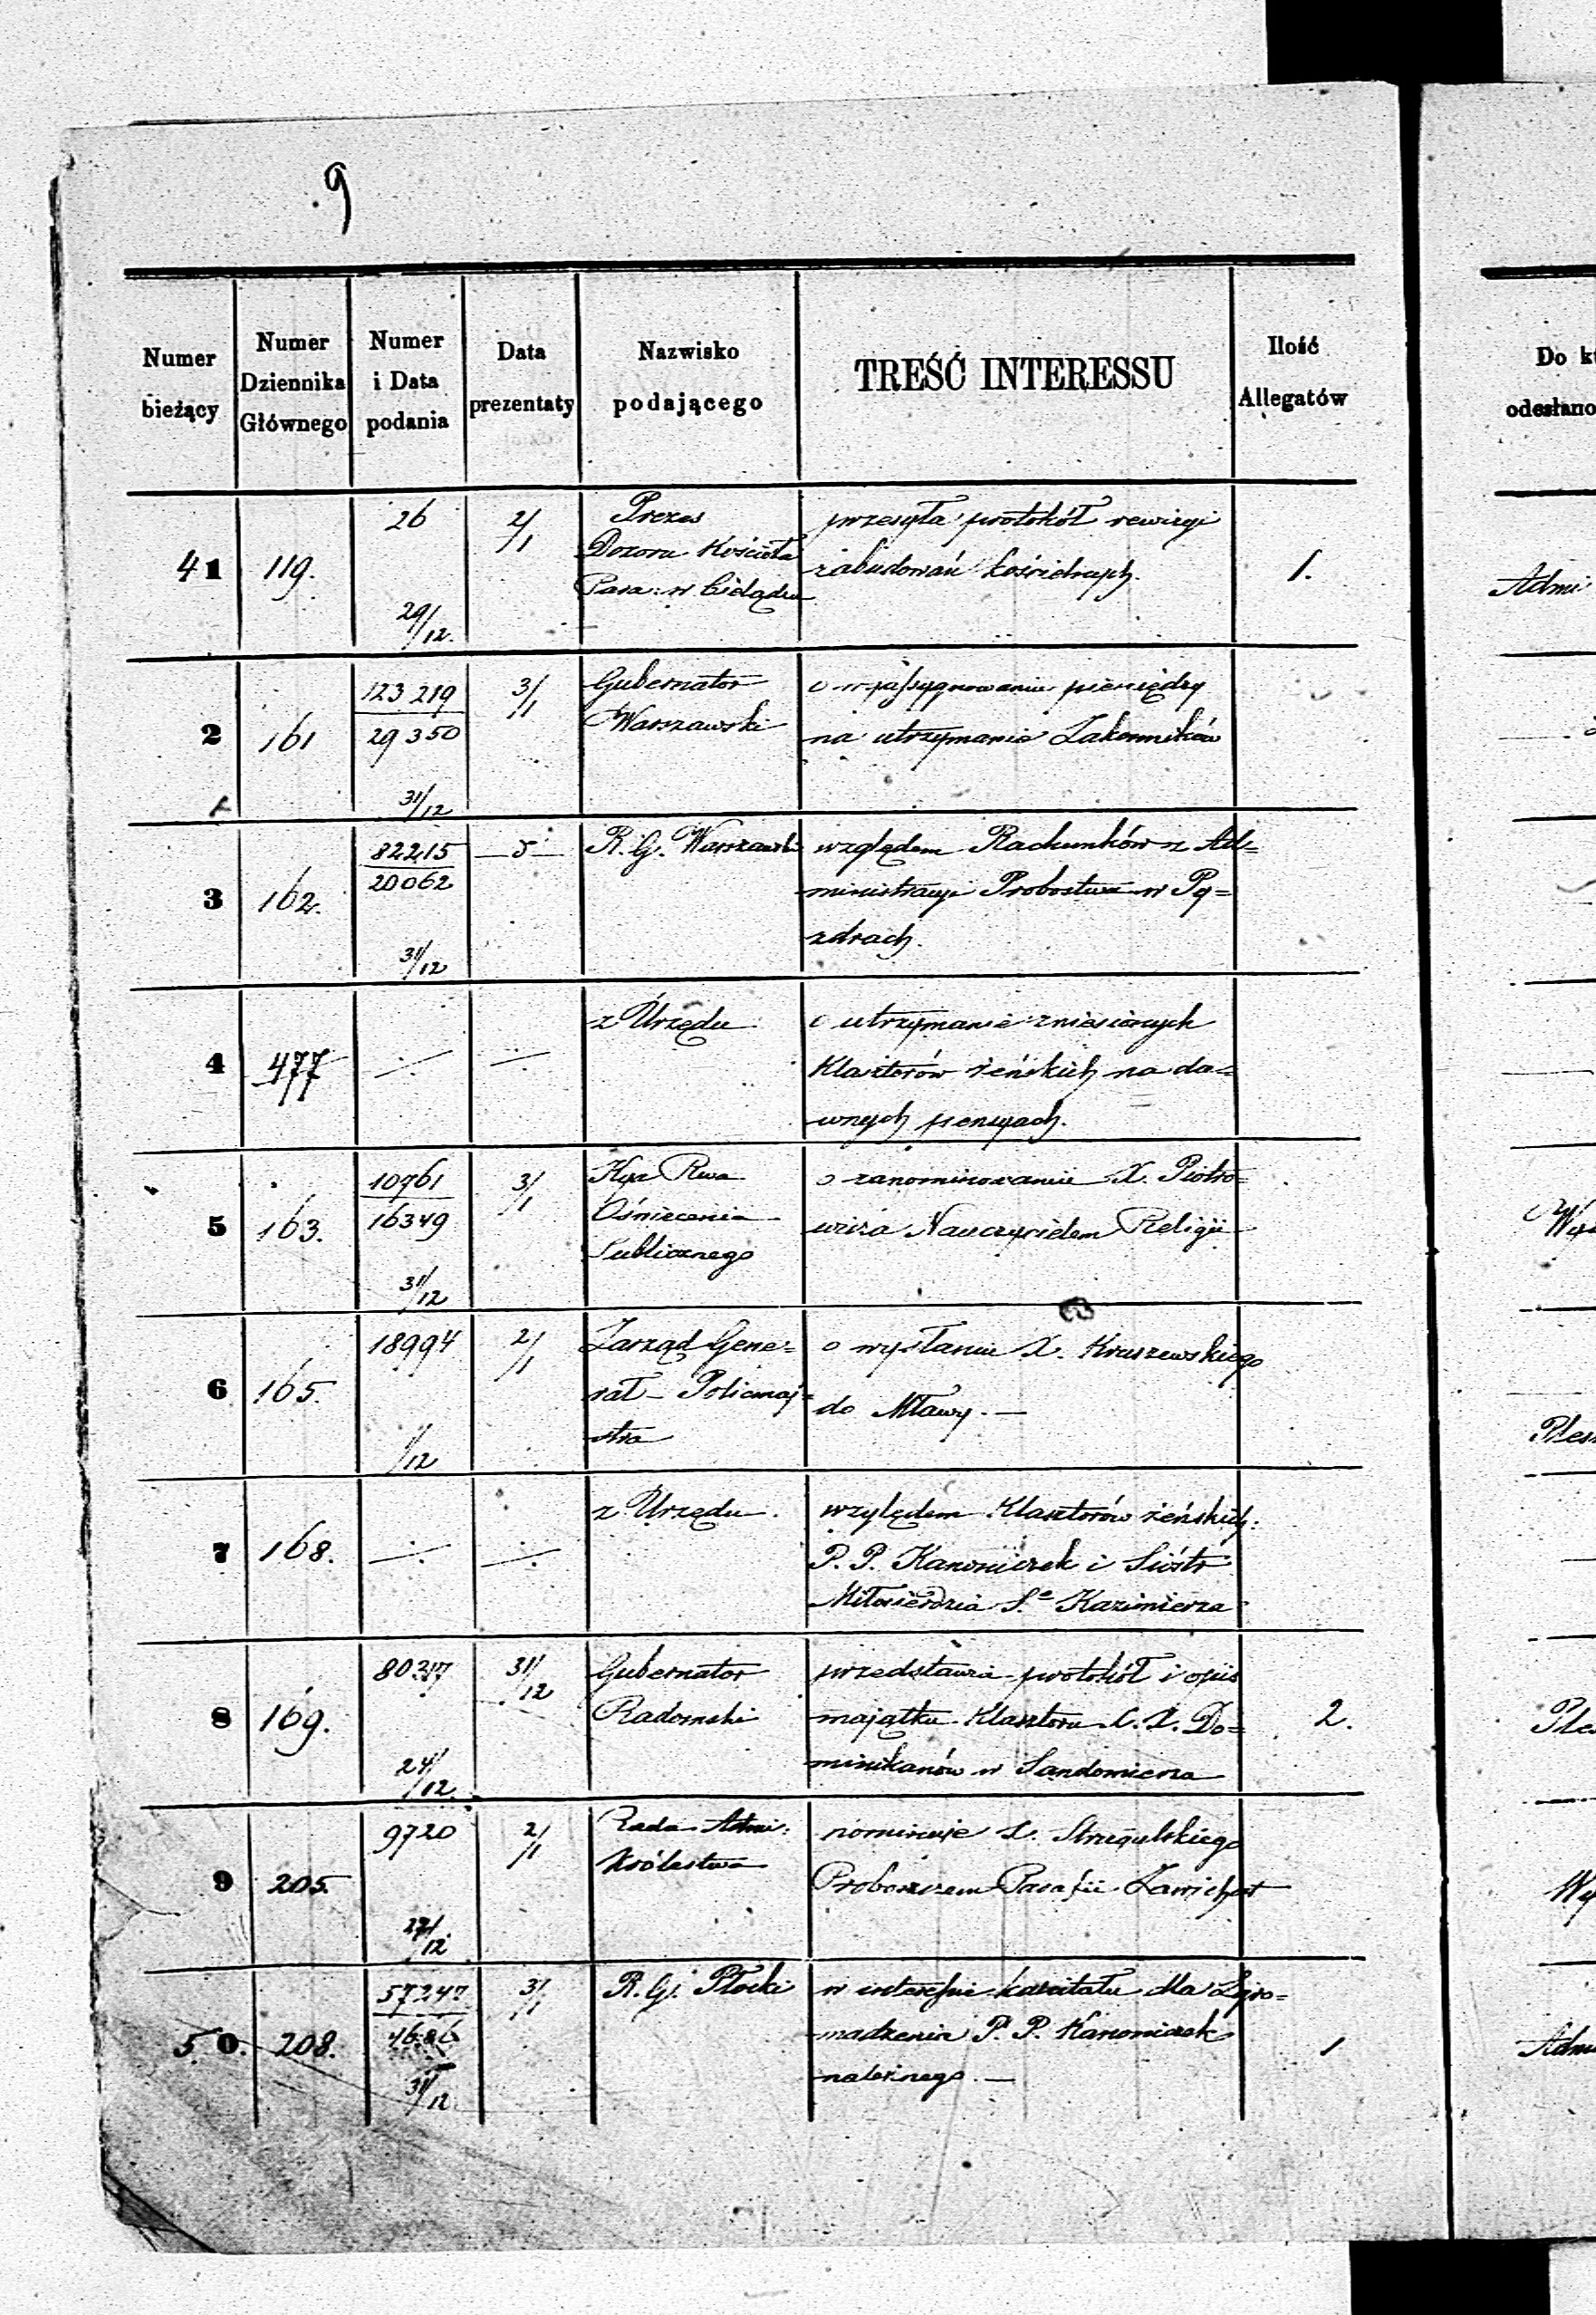 9
Numer bieżący
Numer Dziennika Głównego
Numer i Data podania
Data prezentaty
Nazwisko podającego
TREŚĆ INTERESSU
Ilość Allegatów
Do
odesłano
41 119. 26 29/12. 2/1 Prezes przesyła protokół rewizyi 1. Admi
Dozoru Kościoła zabudowań kościelnych.
Para: w
2 161 123219 29350 31/12 3/1 Gubernator o wyassygnowanie pieniędzy
Warszawski na utrzymanie Zakonników
3 162. 82215 20062 31/12 R. G. Warszawski względem Rachunków z Ad=
ministracyi Probostwa w Py=
zdrach.
4 477 z Urzędu o utrzymanie zniesionych
Klasztorów żeńskich na da=
wnych pensyach.
5 163. 10761 16349 31/12 3/1 o zanominowanie X. Piotro=
Oświecenia wicza Nauczycielem Religii
Publicznego
6 165. 18994 1/12 2/1 Zarząd Gene= o wysłanie X. Kraszewskiego
rał- Policmaj= do Mławy. —
stra
7 168. z Urzędu. względem Klasztorów żeńskich:
P. P. Kanoniczek i Sióstr
Miłosierdzia S.o Kazimierza
8 169. 80317 24/12. 31/12 Gubernator przedstawia protokół i opis 2.
Radomski majątku Klasztoru X. X. Do=
minikanów w Sandomierza
9 205. 9720 2/1 Rada Admi: nominuje X. Strzegulskiego
Królestwa Proboszczem Parafii Zawichost
50. 208. 57247 4686 31/12. 3/1 R. G. Płocki w interesie kapitału dla Zgro= 1 Admi
madzenia P. P. Kanoniczek
należnego. —